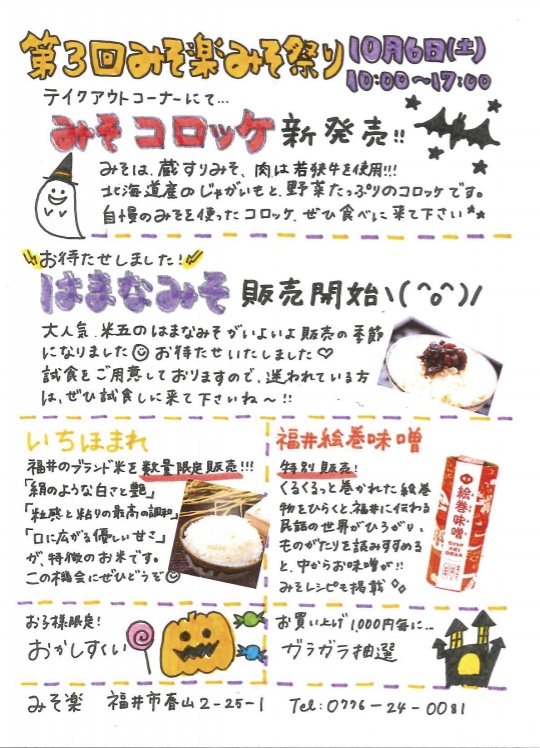 第3回みそ楽みそ祭り 10月6日(土)
10:00〜17:00
テイクアウトコーナーにて…
みそコロッケ 新発売!!
みそは、蔵すりみそ、肉は若狭牛を使用!!!
北海道産のじゃがいもと、野菜たっぷりのコロッケです。
自慢のみそを使ったコロッケ、ぜひ食べに来て下さい
お待たせしました!
はまなみそ 販売開始ヽ(^o^)ノ
大人気、米五のはまなみそがいよいよ販売の季節
になりました☺お待たせいたしました♡
試食をご用意しておりますので、迷われている方
は、ぜひ試食しに来て下さいね〜!!
いちほまれ
福井のブランド米を数量限定販売!!!
「絹のような白さと艶」
「粒感と粘りの最高の調和」
「口に広がる優しい甘さ」
が、特徴のお米です。
この機会にぜひどうぞ☺
福井絵巻味噌
特別販売!
くるくるっと巻かれた絵巻
物をひらくと、福井に伝わる
民話の世界がひろがり、
ものがたりを読みすすめる
と、中からお味噌が!!
みそレシピも掲載
絵巻味噌
お子様限定!
おかしすくい
お買い上げ1,000円毎に…
ガラガラ抽選
みそ楽 福井市春山2-25-1 Tel:0776-24-0081